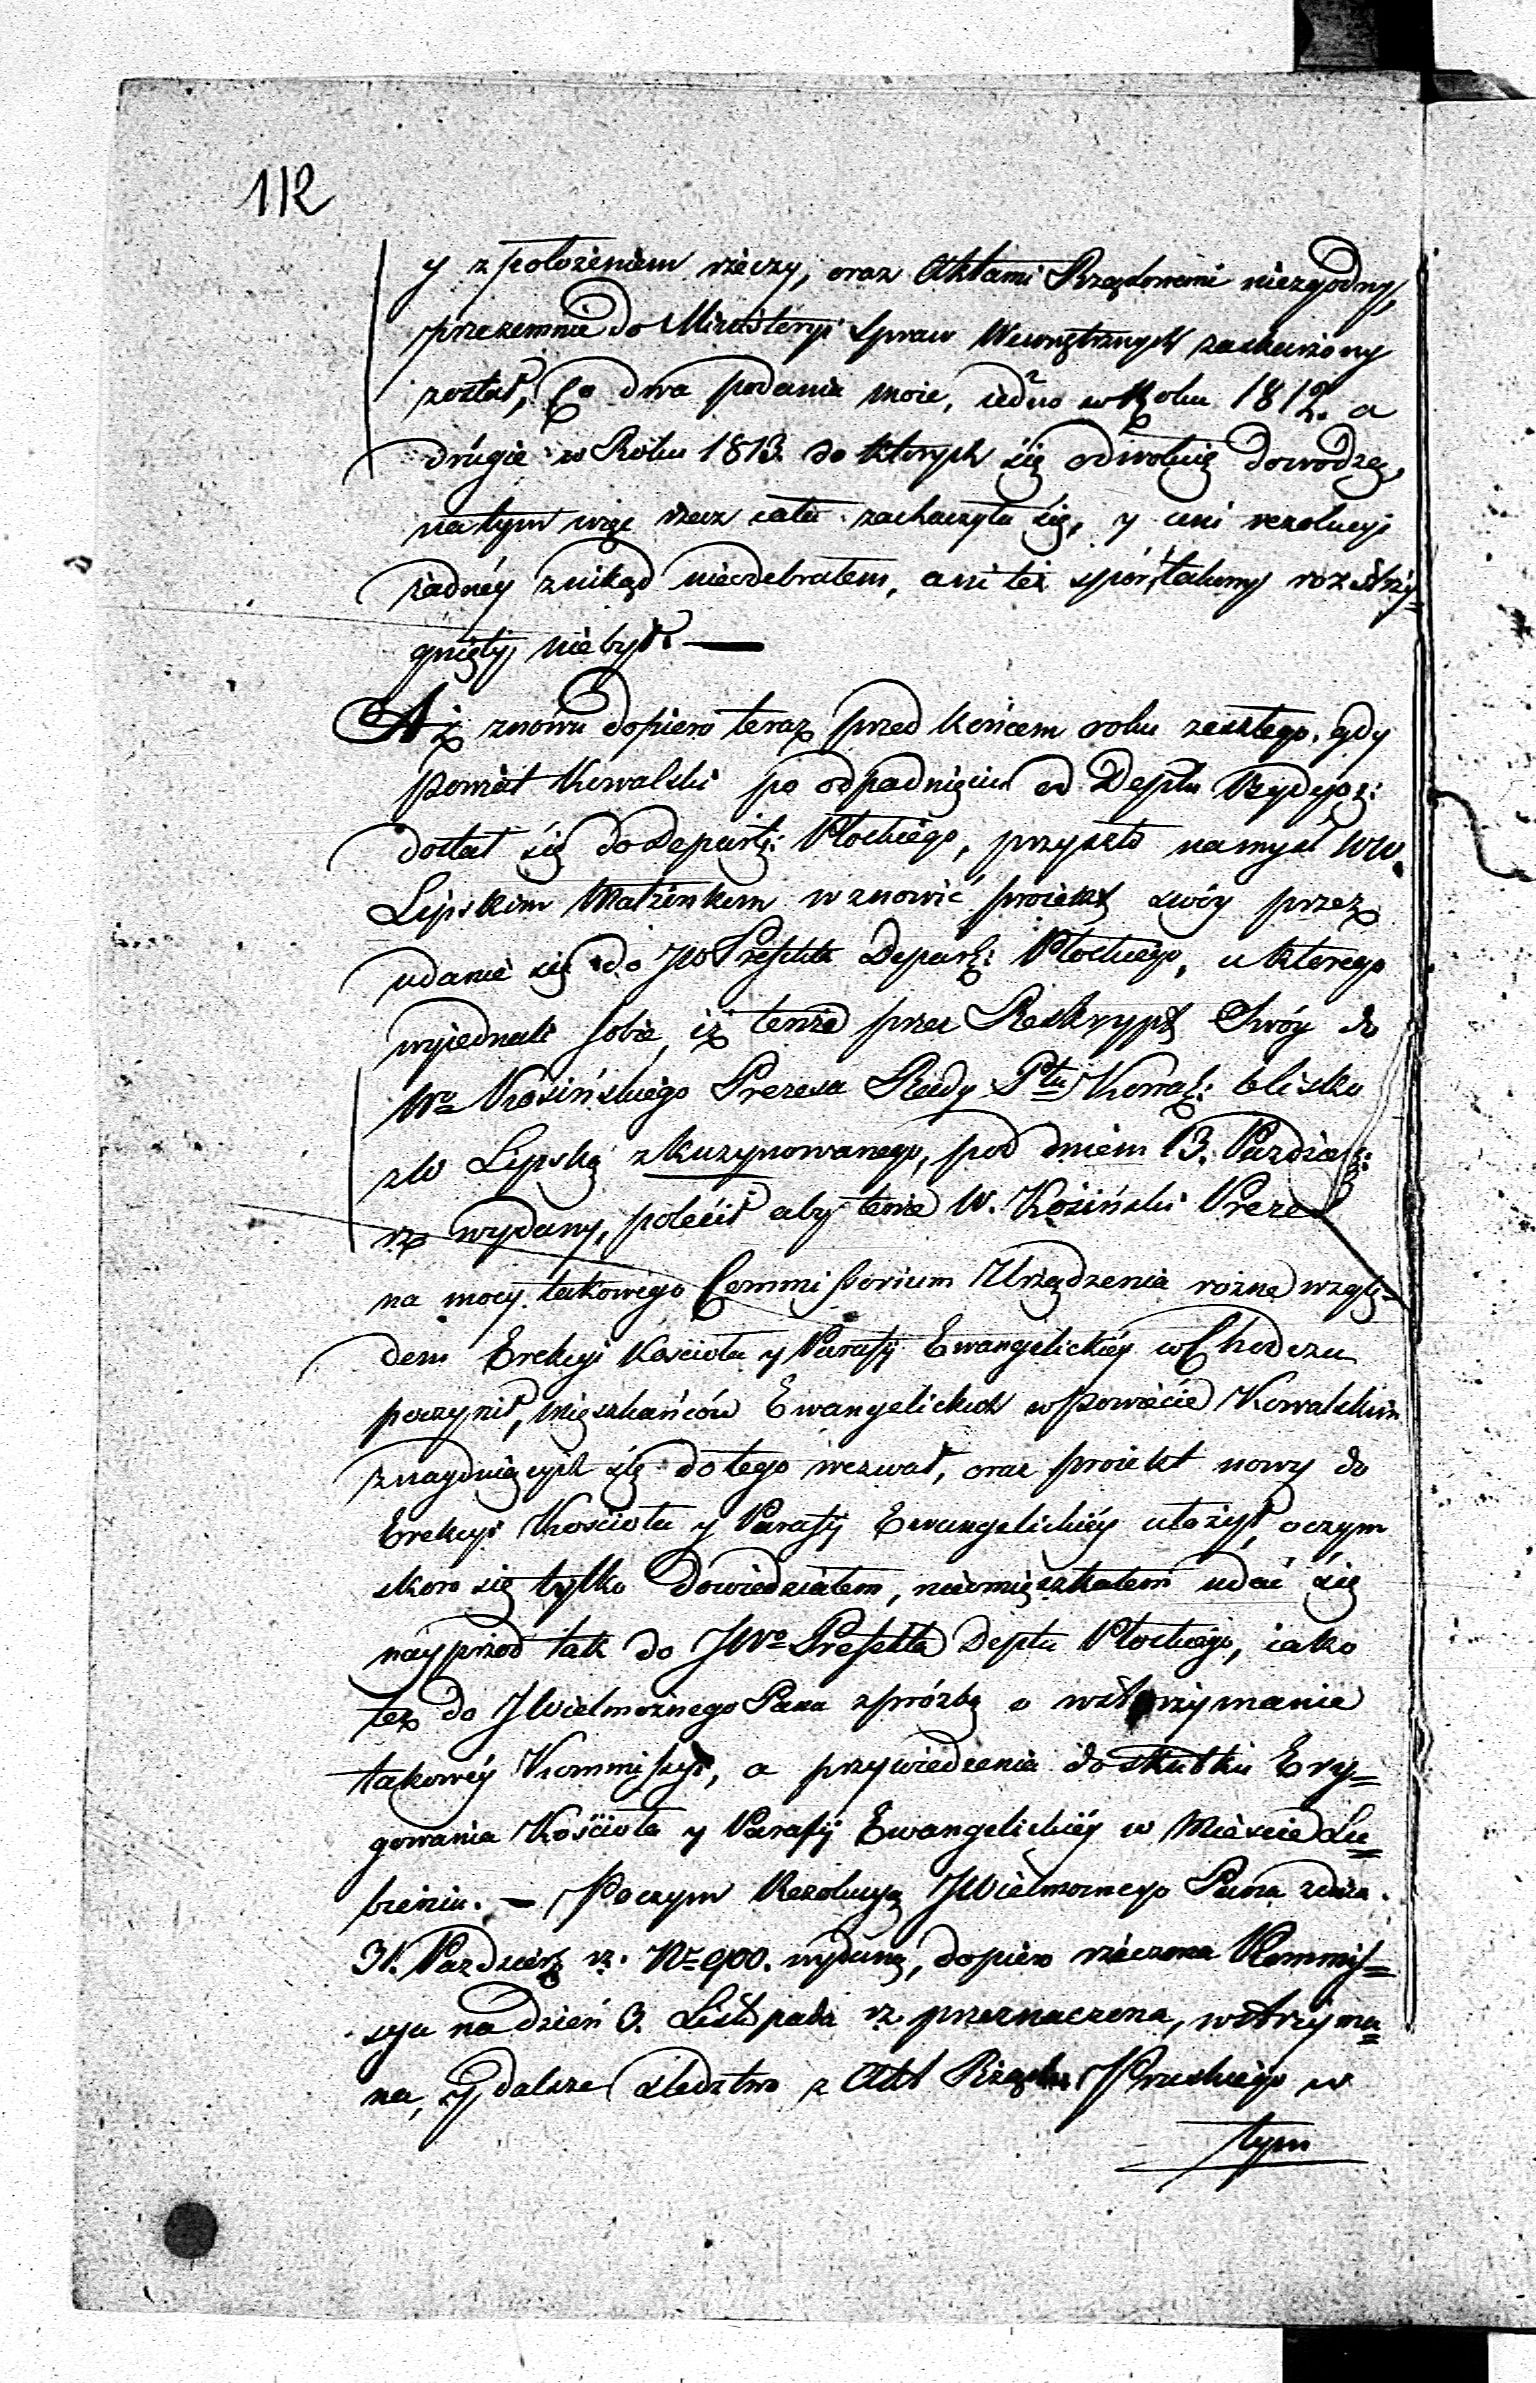 112
y z położeniem rzeczy, oraz Aktami Rządowemi niezgodny,
przezemnie do Ministeryi Spraw Wewnętrznych zaskarżony
został, Co dwa podania moie, iedno w Roku 1812. a
drugie w Roku 1813. do ktorych się odwołuię dowodzą,
na tym więc rzecz cała zachaczyła się, y ani rezolucyi
żadnéy znikąd nieodebrałem, ani też spór takowy rozstrzy=
gnięty niebył. —
Aż znowu dopiero teraz przed końcem roku zeszłego, gdy
Powiat Kowalski po odpadnięciu od Deptu Bydgos:
dostał się do Depart: Płockiego, przyszło na myśl WW.
Lipskim Małżonkom wznowić proiekt swóy przez
udanie się do JW Prefekta Depart: Płockiego, u ktorego
wyiednali sobie, iż tenże przez Reskrypt Swóy do
Wo Kosińskiego Prezesa Rady Ptu Kowal: blisko
z W Lipską zkuzynowanego, pod dniem 13. Pazdzier:
rz wydany, polécił aby tenże W. Kosiński Prezes
na mocy takowego Commissorium Urządzenia rożne wzglę=
dem Erekcyi Kościoła y Parafij Ewangelickiéy w Chodczu
poczynił, mięszkańców Ewangelickich w Powiecie Kowalskim
znayduiących się do tego wezwał, oraz proiekt nowy do
Erekcyi Kościoła y Parafij Ewangelickiéy ułożył, o czym
skoro się tylko dowiedziałem, nieomięszkałem udać się
nayprzod tak do JWo Prefekta Deptu Płockiego, iako
też do JWielmożnego Pana z prózbą o wstrzymanie
takowéy Kommissyi, a przywiedzenia do skutku Ery=
gowania Kościoła y Parafij Ewangelickiéy w Mieście Lu=
bieniu. — Poczym Rezolucyą JWielmożnego Pana z dnia
31. Pazdzier rz. Nr 900. wydaną, dopiero rzeczona Kommis=
sya na dzień 3. Listopada rz. przeznaczona, wstrzyma=
na, y dalsze śledztwo z Akt Rządu Pruskiego w
tym